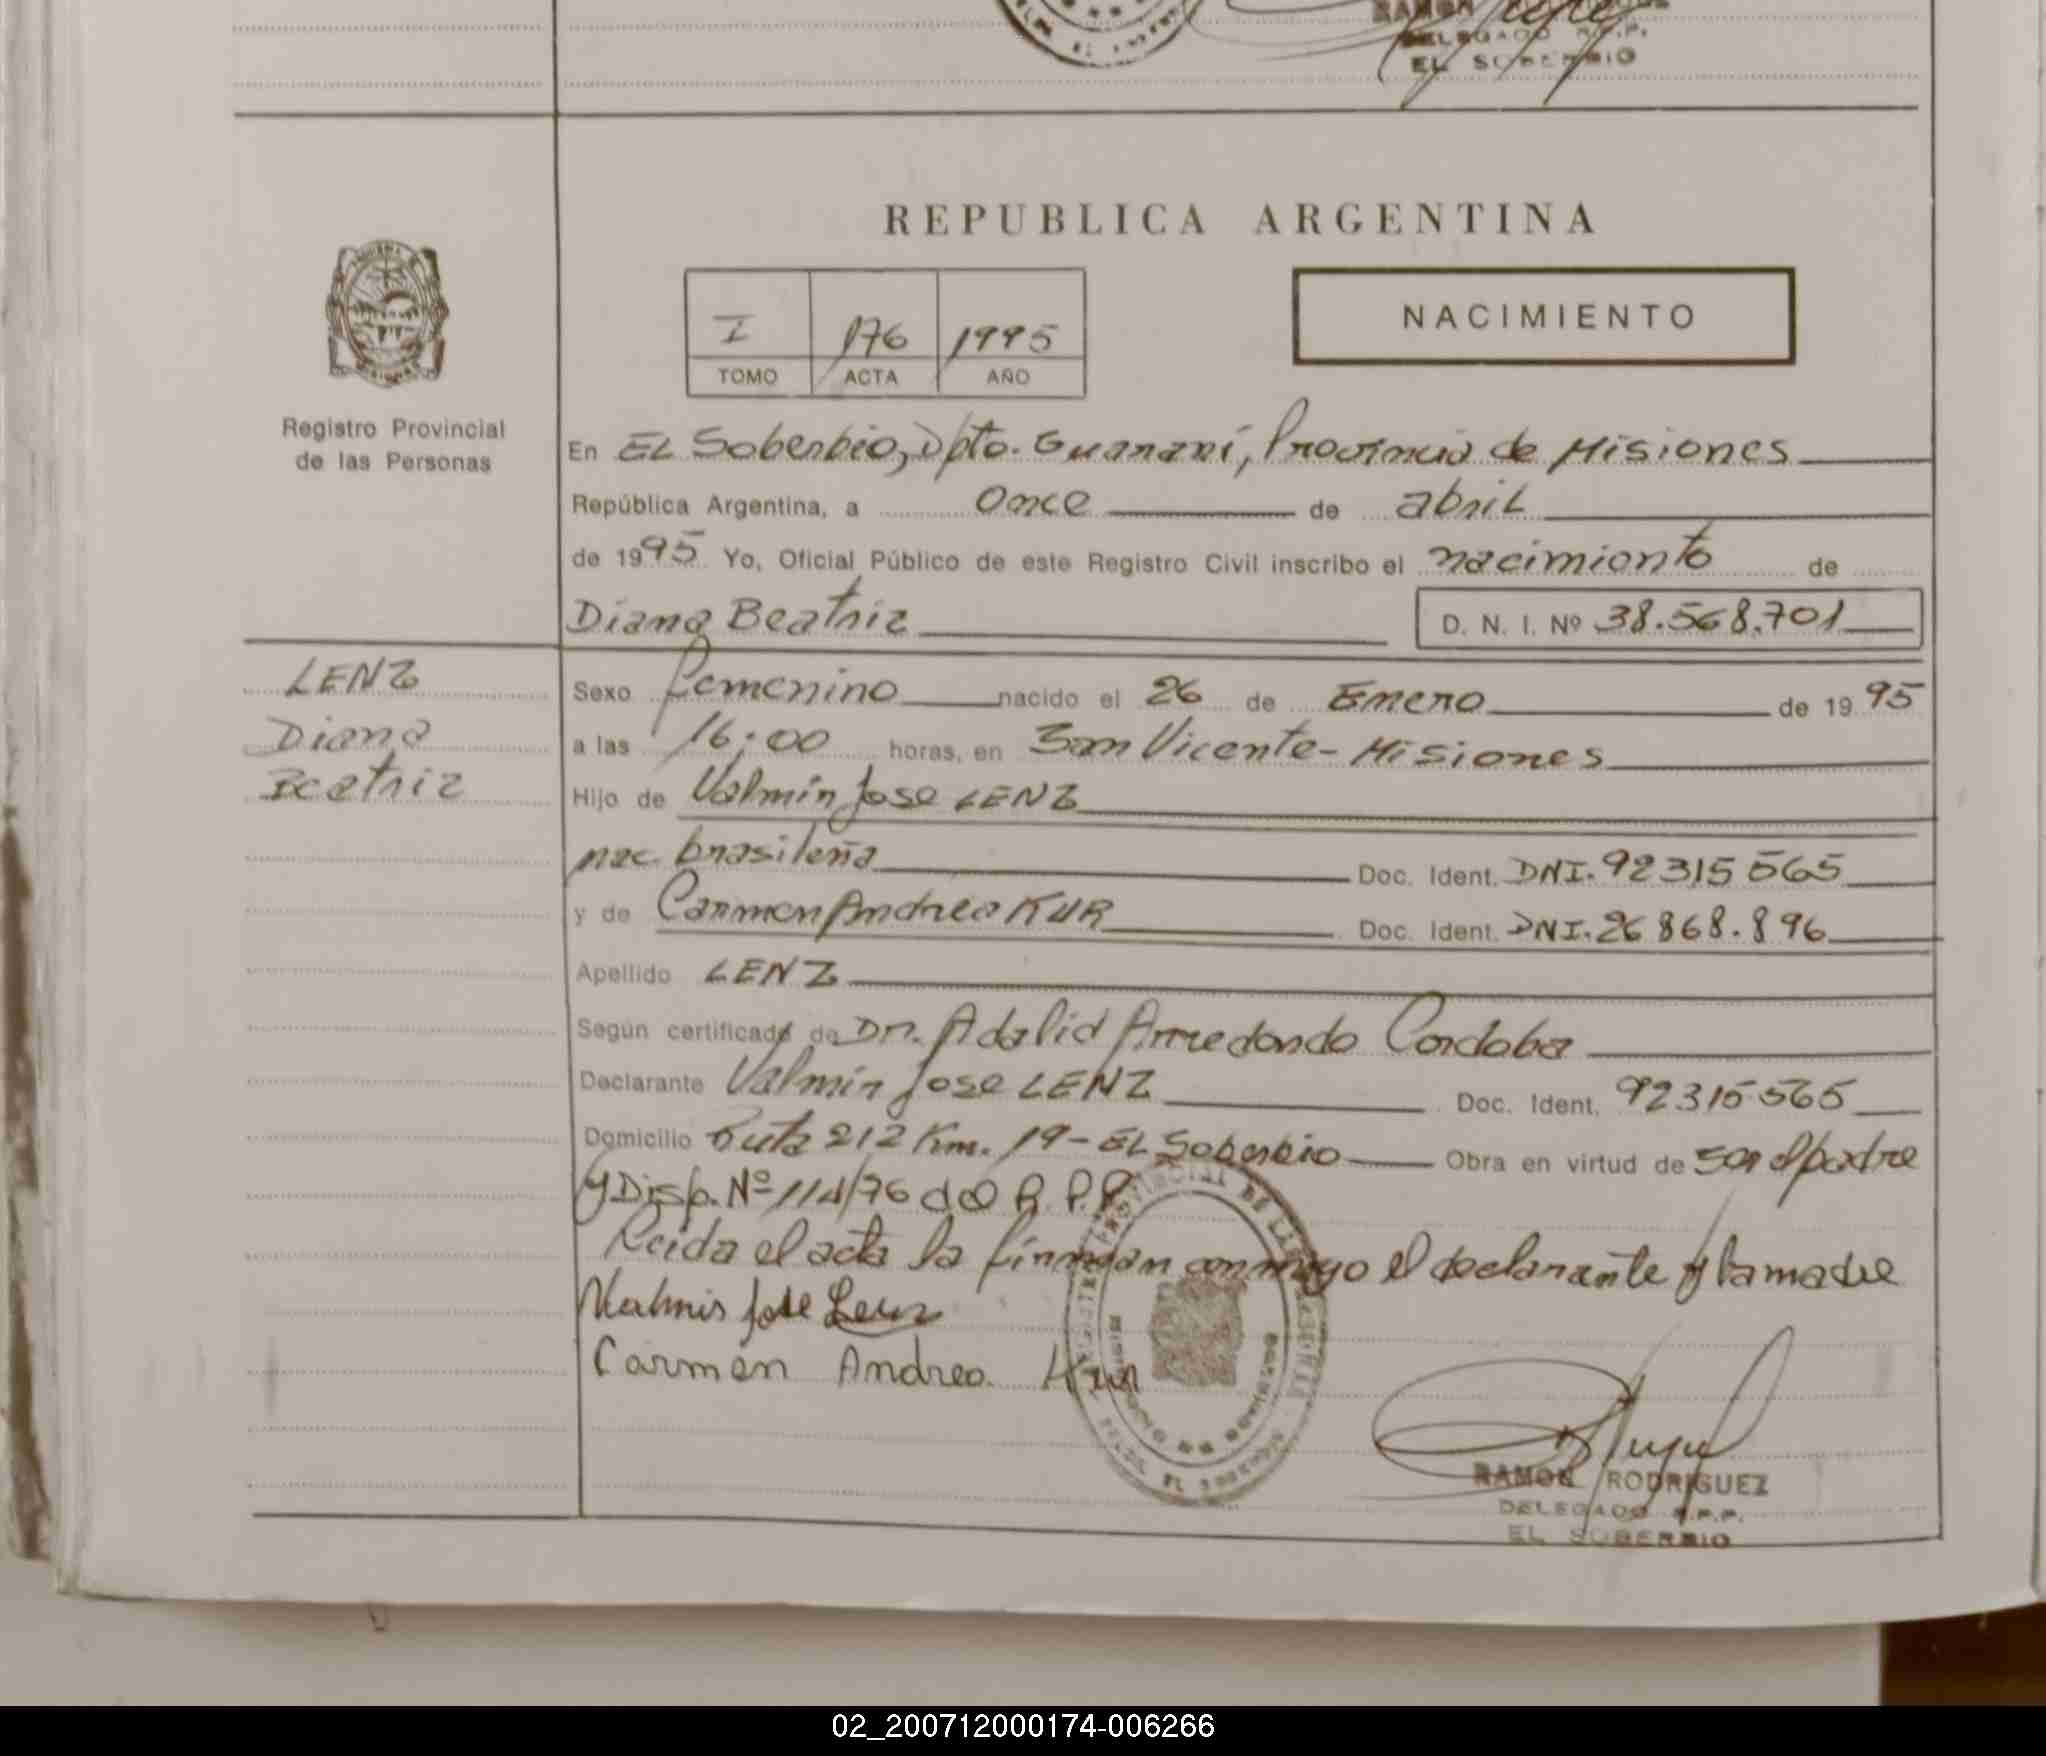 DELEGADO R.P.P.
EL SOBERBIO
REPUBLICA ARGENTINA
I 176 1995
TOMO ACTA AÑO
NACIMIENTO
Registro Provincial
de las Personas
En EL Soberbio, Dpto. Guaraní, Provincia de Misiones
República Argentina, a once de abril
de 1995 Yo, Oficial Público de este Registro Civil inscribo el nacimiento de
Diana Beatriz D. N. I. Nº 38.568.701
LENZ
Diana
Beatriz
Sexo femenino nacido el 26 de Enero de 1995
a las 16:00 horas, en San Vicente - Misiones
Hijo de Valmir Jose LENZ
nac. brasileña Doc. Ident. DNI. 92315565
y de Carmen Andrea KUR Doc. Ident. DNI. 26868.896
Apellido LENZ
Según certificado de Dr. Adalid Arredondo Cordoba
Declarante Valmir Jose LENZ Doc. Ident. 92315565
Domicilio Ruta 212 Km. 19 - EL Soberbio Obra en virtud de ser el padre
y Disp. Nº 114/76 del R.P.P.
Leida el acta la firman conmigo el declarante y la madre
Valmir Jose Lenz
Carmen Andrea Kur
RAMON RODRIGUEZ
DELEGADO R.P.P.
EL SOBERBIO
02_200712000174-006266